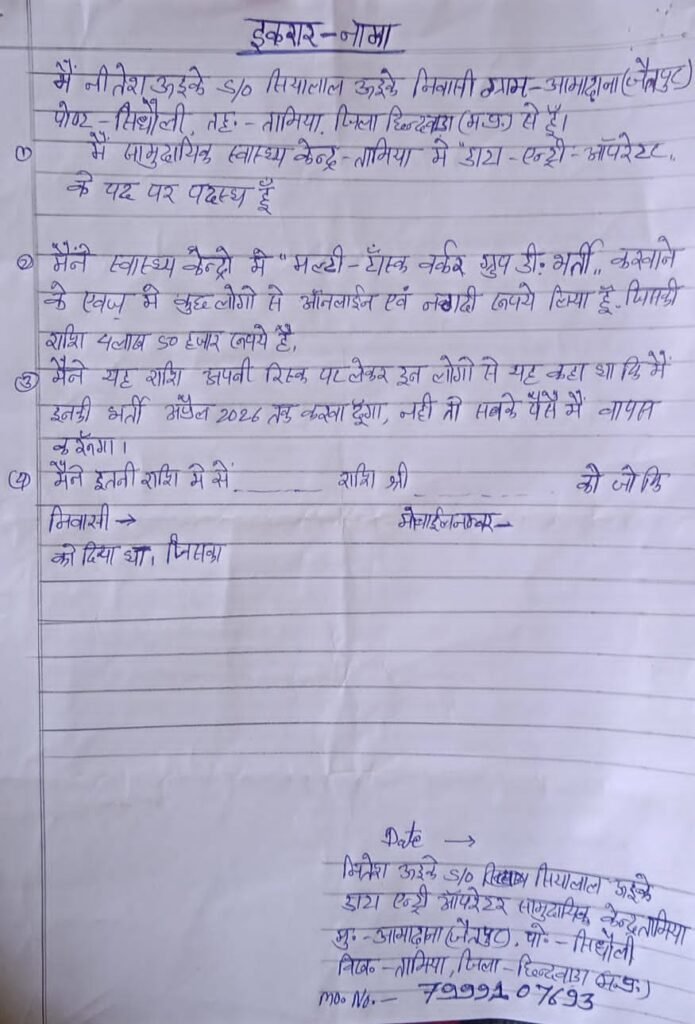 इकरार-नामा
मैं नीतेश उइके S/o सियालाल उइके निवासी ग्राम-आमाढाना(जैतपुर)
पोस्ट-सिधौली, तह:-तामिया, जिला छिन्दवाडा (म.प्र.) से हूँ।
① मैं सामुदायिक स्वास्थ्य केन्द्र-तामिया मे "डाटा-एन्ट्री-ऑपरेटर"
के पद पर पदस्थ हूँ
② मैंने स्वास्थ्य केन्द्रो मे "मल्टी-टॉस्क वर्कर ग्रुप डी. भर्ती" करवाने
के एवज् मे कुछ लोगो से ऑनलाईन एवं नगदी रुपये लिया हूँ. जिसकी
राशि 4लाख 50 हजार रुपये है,
③ मैंने यह राशि अपनी रिस्क पर लेकर इन लोगो से यह कहा था कि मैं
इनकी भर्ती अप्रैल 2026 तक करवा दूंगा, नही तो सबके पैसै मैं वापस
करुँगा।
④ मैंने इतनी राशि मे से ____ राशि श्री _ _ _ _ _ को जो कि
निवासी → मोबाईल नम्बर-
को दिया था, जिसका
Date →
नितेश उइके S/o सियालाल उइके
डाटा एन्ट्री ऑपरेटर सामुदायिक केन्द्र तामिया
मु:-आमाढाना(जैतपुर), पो:-सिधौली
विख.-तामिया, जिला-छिन्दवाडा (म.प्र.)
mo. No.- 7999107693